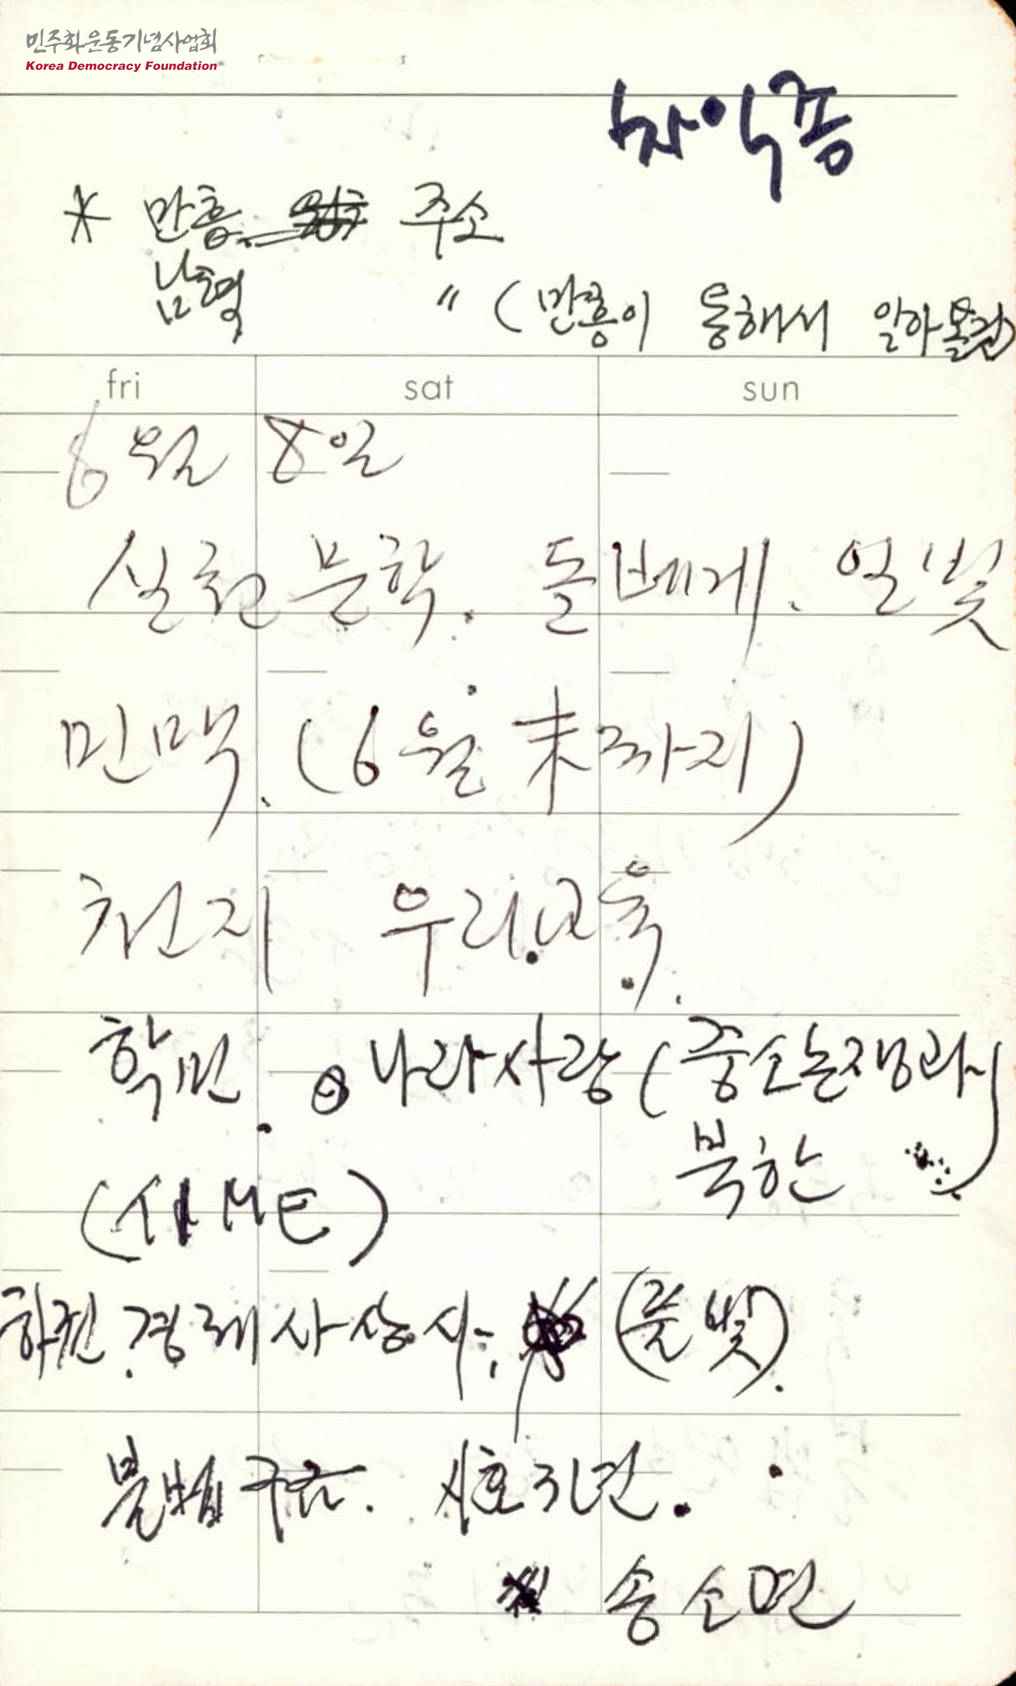 민주화운동기념사업회
Korea Democracy Foundation
차익종
* 만흥 주소
남혁 " (만흥이 통해서 알아볼것)
fri sat sun
6월 8일
실천문학. 돌베게. 일빛
민맥. (6월 末까지)
천지 우리교육.
학민. 나라사랑 (중소논쟁과
북한
경제사상사: (풀빛).
불법구금. 서호3면.
송소면